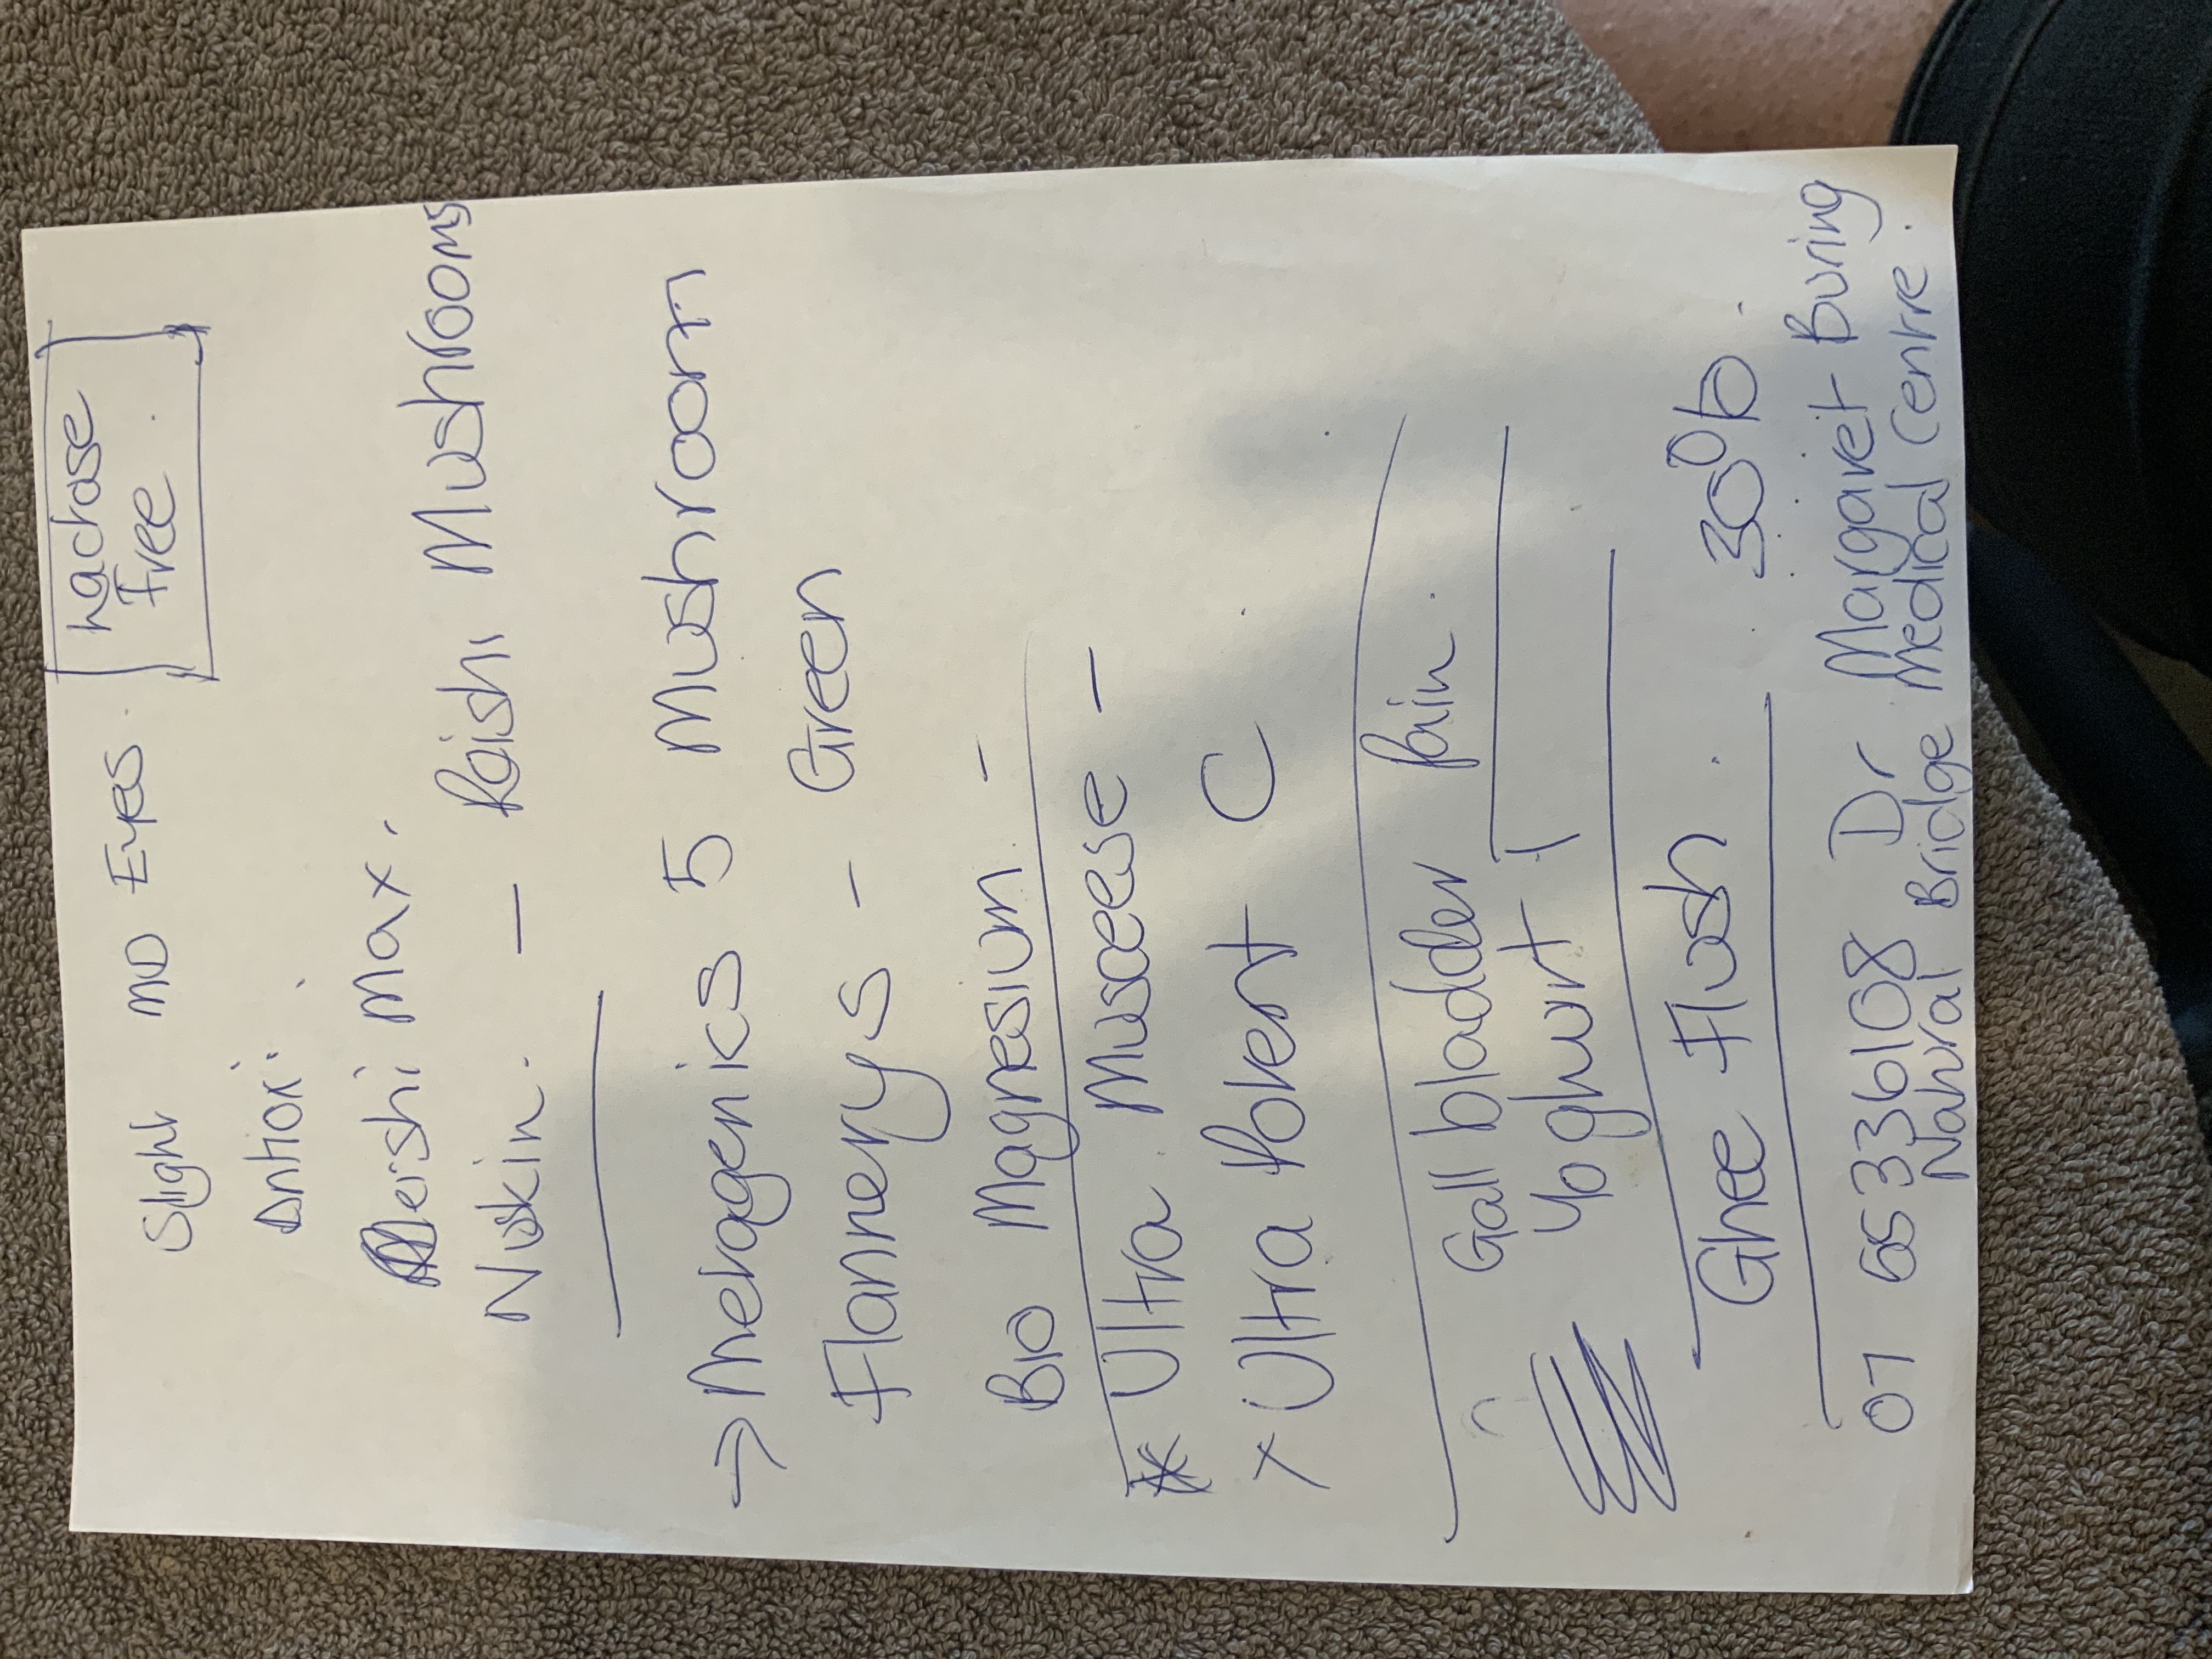 Slight MD Eyes.
Lactose
Free.
Antioxi.
Reishi Max.
Nuskin. - Reishi Mushrooms
→ Metagenics 5 Mushroom
Flannerys - Green
Bio Magnesium -
* Ultra Muscleese -
x Ultra Potent C
Gall bladder Pain.
Yoghurt
Ghee Flush. 30%.
07 65336108 Dr Margaret Buring
Natural Bridge Medical Centre.